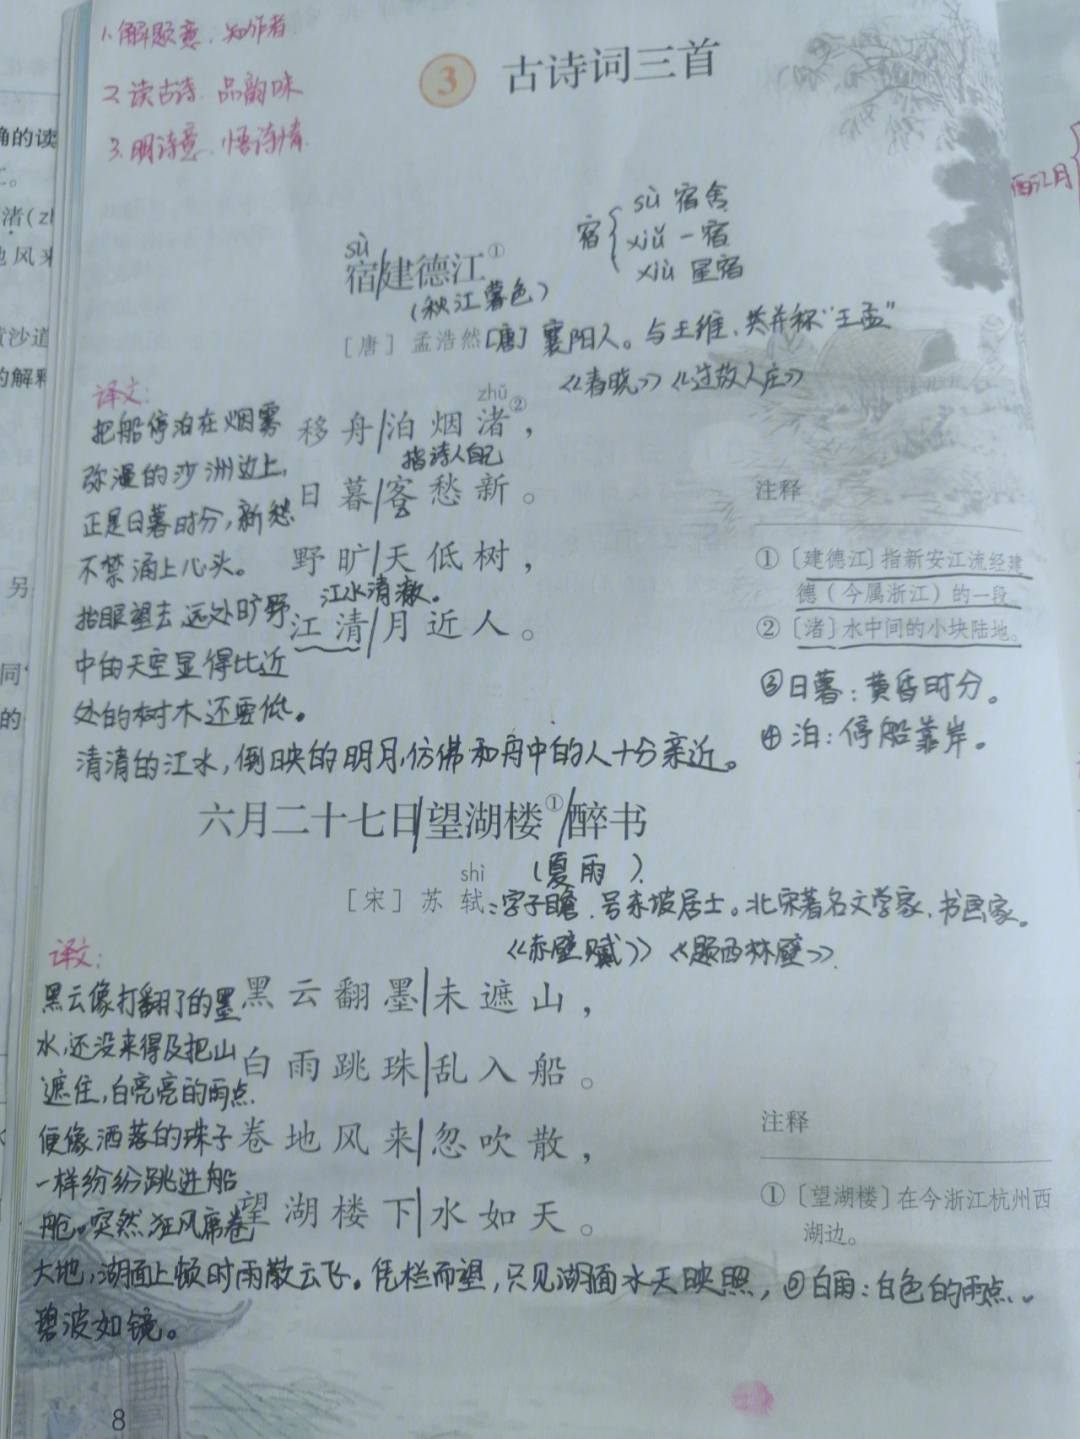 1.解题意、知作者
2.读古诗、品韵味
3.明诗意、悟诗情
3 古诗词三首
确的读
渚(zh
地风来
黄沙道
的解释
另
同
的
酉江月
sù 宿舍
宿 xiǔ 一宿
xiù 星宿
sù
宿/建德江①
(秋江暮色)
[唐] 孟浩然 [唐] 襄阳人。与王维、共并称"王孟"
《春晓》《过故人庄》
译文:
把船停泊在烟雾
弥漫的沙洲边上,
正是日暮时分,新愁
不禁涌上心头。
抬眼望去,远处旷野
中的天空显得比近
处的树木还要低。
清清的江水,倒映的明月,仿佛和舟中的人十分亲近。
zhǔ
移舟/泊烟渚②,
指诗人自己
日暮/客愁新。
野旷/天低树,
江水清澈。
江清/月近人。
注释
①〔建德江〕指新安江流经建
德(今属浙江)的一段。
②〔渚〕水中间的小块陆地。
③日暮:黄昏时分。
④泊:停船靠岸。
六月二十七日/望湖楼①/醉书
(夏雨)
shì
[宋] 苏轼:字子瞻、号东坡居士。北宋著名文学家、书画家。
《赤壁赋》《题西林壁》
译文:
黑云像打翻了的墨
水,还没来得及把山
遮住,白亮亮的雨点
便像洒落的珠子
一样纷纷跳进船
舱。突然狂风席卷
大地,湖面上顿时雨散云飞。凭栏而望,只见湖面水天映照,
碧波如镜。
黑云翻墨/未遮山,
白雨跳珠/乱入船。
卷地风来/忽吹散,
望湖楼下/水如天。
注释
①〔望湖楼〕在今浙江杭州西
湖边。
②白雨:白色的雨点。
8